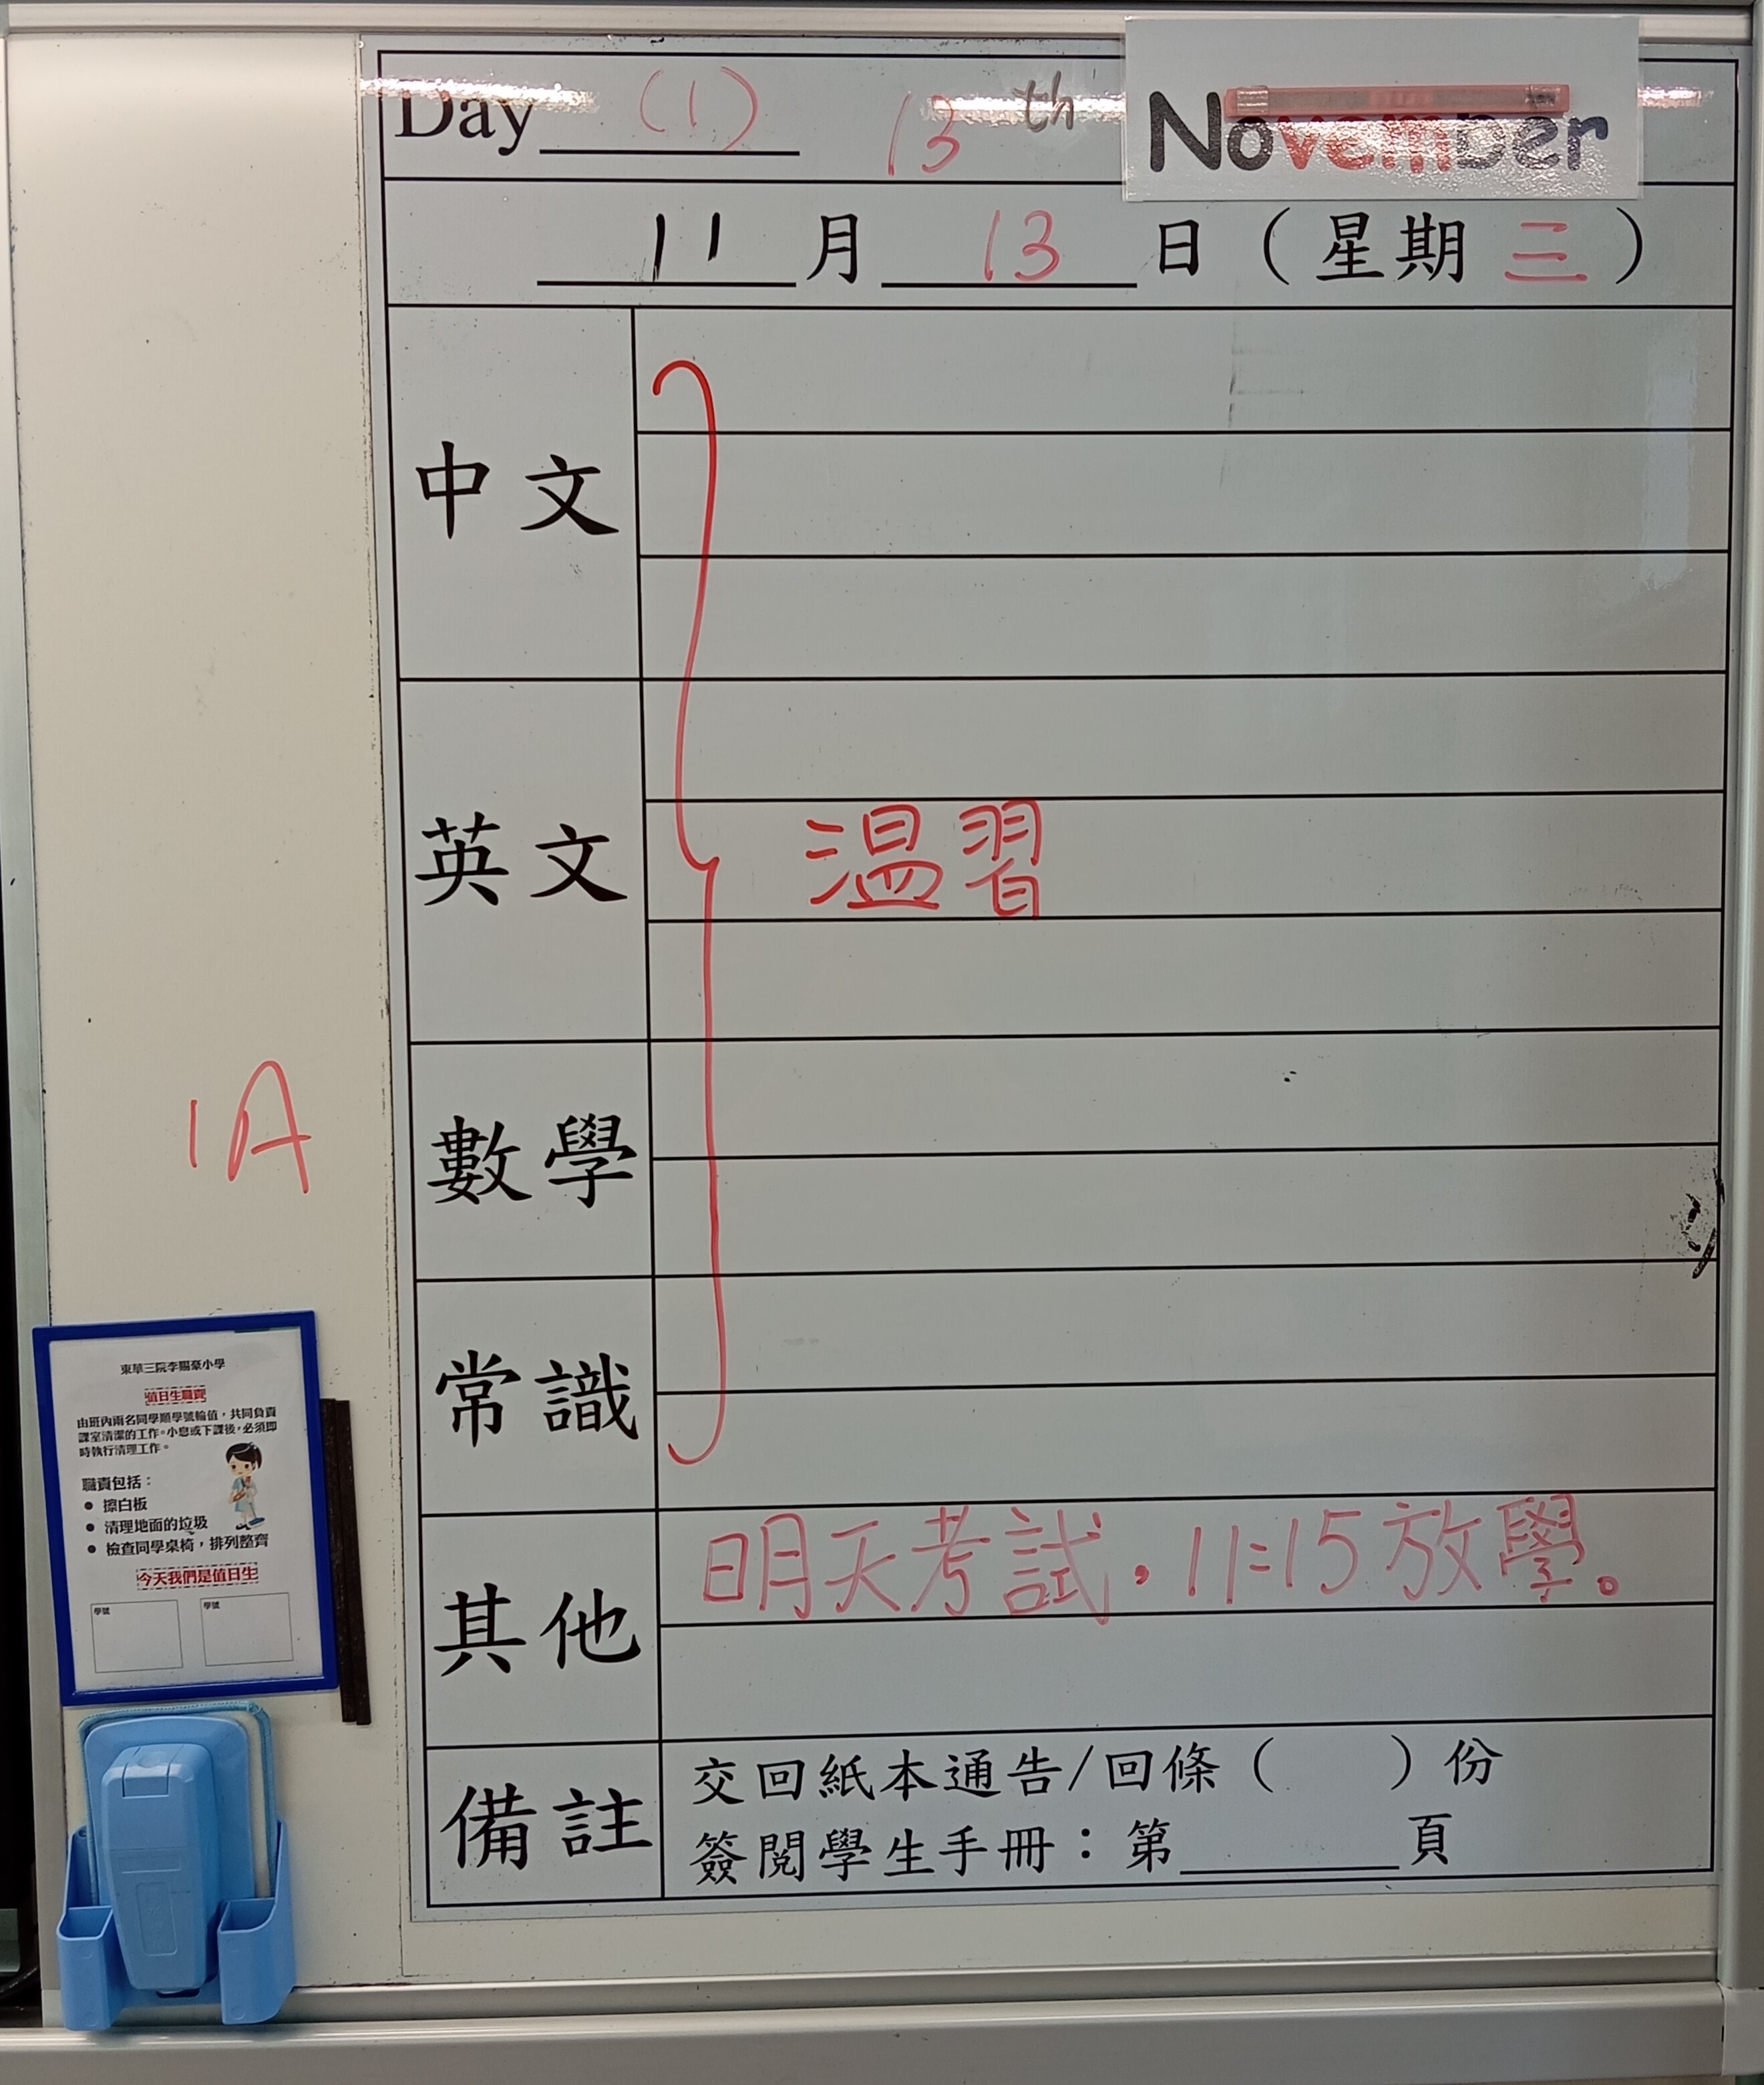 Day (1) 13th November
11月13日（星期三）
中文
英文
温習
數學
常識
其他
明天考試，11:15放學。
備註
交回紙本通告/回條（ ）份
簽閱學生手冊：第______頁
1A
東華三院李賜豪小學
值日生職責
由班內兩名同學順學號輪值，共同負責
課室清潔的工作。小息或下課後，必須即
時執行清理工作。
職責包括：
● 擦白板
● 清理地面的垃圾
● 檢查同學桌椅，排列整齊
今天我們是值日生
學號 學號